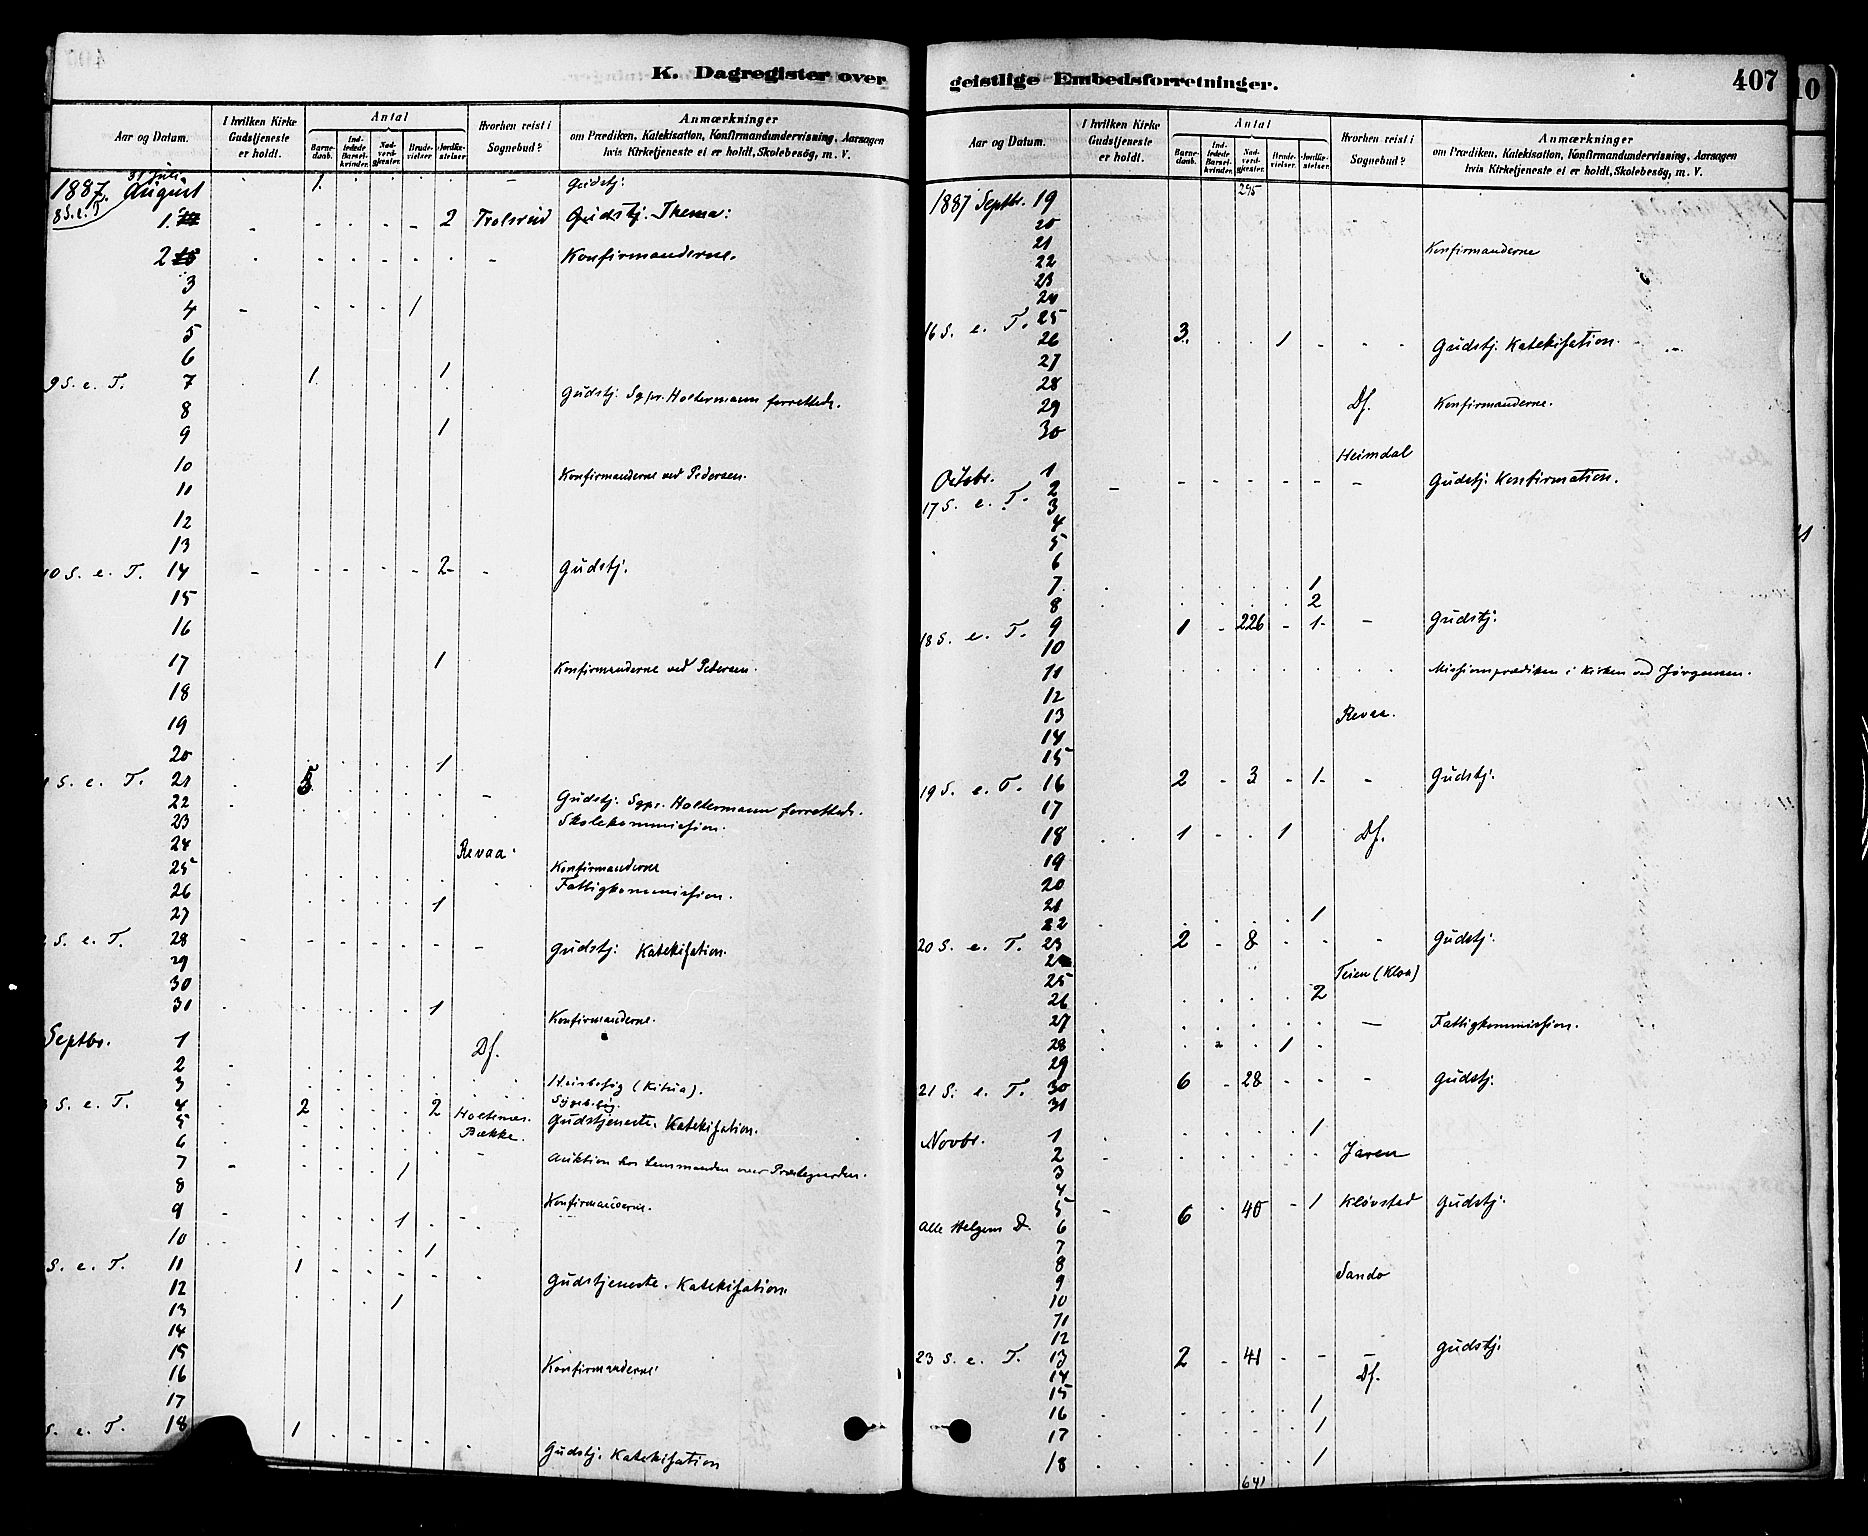 K. Dagregister over
Aar og Datum. I hvilken Kirke Gudstjeneste er holdt. Antal Barnedaab. Indledede Barselkvinder. Nadverdgjester. Brudevielser Jordfæstelser Hvorhen reist i Sognebud? Anmærkninger om Prædiken, Katekisation, Konfirmandundervisning, Aarsagen hvis Kirketjeneste ei er holdt, Skolebesög, m. V.
31 Juli 1. Gudstj:
1887. August
8 S. e. T. 1 2 Trolsrud Gudstj. Thema:
2 Konfirmanderne.
3
4 1
5
6
9 S. e. T. 7 1 1 Gudstj. Sgpr. Holtermann forrettede.
8
9 1
10 Konfirmanderne ved Pedersen.
11
12
13
10 S. e. T. 14 2 Gudstj.
15
16
17 1 Konfirmanderne ved Pedersen.
18
19
20 1
S. e. T. 21 5 Gudstj. Sgpr. Holtermann forrettede.
22 Skolekommission.
23
24 Revaa
25 Konfirmanderne
26 Fattigkommission.
27 1
S. e. T. 28 Gudstj: Katekisation.
29
30
31 1 Konfirmanderne.
Septbr. 1 Df.
2
3 Husbesøg (Kihia).
S. e. T. 4 2 2 Holtenes Sygebesøg. Gudstjeneste. Katekisation.
5 Bække.
6
7 1 Auktion hos Lensmanden over Præstegaarden.
8
9 1 Konfirmanderne.
10 1
S. e. T. 11 1 Gudstjeneste. Katekisation
12
13 1
14
15
16 Konfirmanderne
17
S. e. T. 18 1 Gudstj. Katekisation
geistlige Embedsforretninger. 407
Aar og Datum. I hvilken Kirke Gudstjeneste er holdt. Antal Barnedaab. Indledede Barselkvinder. Nadverdgjester. Brudevielser. Jordfæstelser. Hvorhen reist i Sognebud? Anmærkninger om Prædiken, Katekisation, Konfirmandundervisning, Aarsagen hvis Kirketjeneste ei er holdt, Skolebesög, m. V
1887 Septbr. 19 295
20
21 Konfirmanderne
22
23
24
16 S. e. T. 25 3 1 Gudstj. Katekisation.
26
27
28 Df. Konfirmanderne.
29
30 Heimdal
Octobr. 1
17 S. e. T. 2 Gudstj. Konfirmation.
3
4
5
6
7 1
8 2
18 S. e. T. 9 1 226 1 Gudstj:
10
11 Missionsprædiken i Kirken ved Jørgensen.
12
13 Revaa.
14
15
19 S. e. T. 16 2 3 1 Gudstj.
17
18 1 1 Df.
19
20
21
22 1
20 S. e. T. 23 2 8 Gudstj:
24
25 Teien (Kloa)
26 2
27 Fattigkommission.
28 1
29
21 S. e. T. 30 6 28 Gudstj.
31
Novbr. 1 1
2 Jaren
3
4
5
Alle Helgens D. 6 6 40 1 Kløvstad Gudstj:
7
8
9 Sando
10
11
12
23 S. e. T. 13 2 41 Gudstj.
14 Df.
15
16 1
17 1
18 1
641